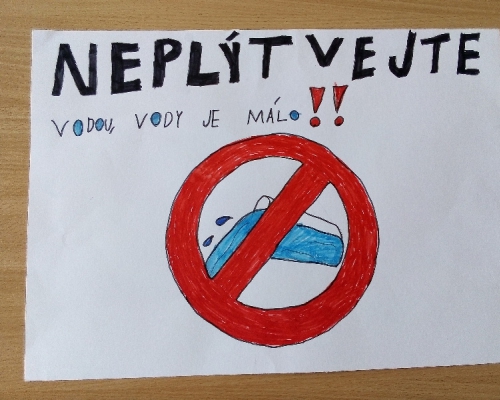 NEPLÝTVEJTE
VODOU, VODY JE MÁLO!!